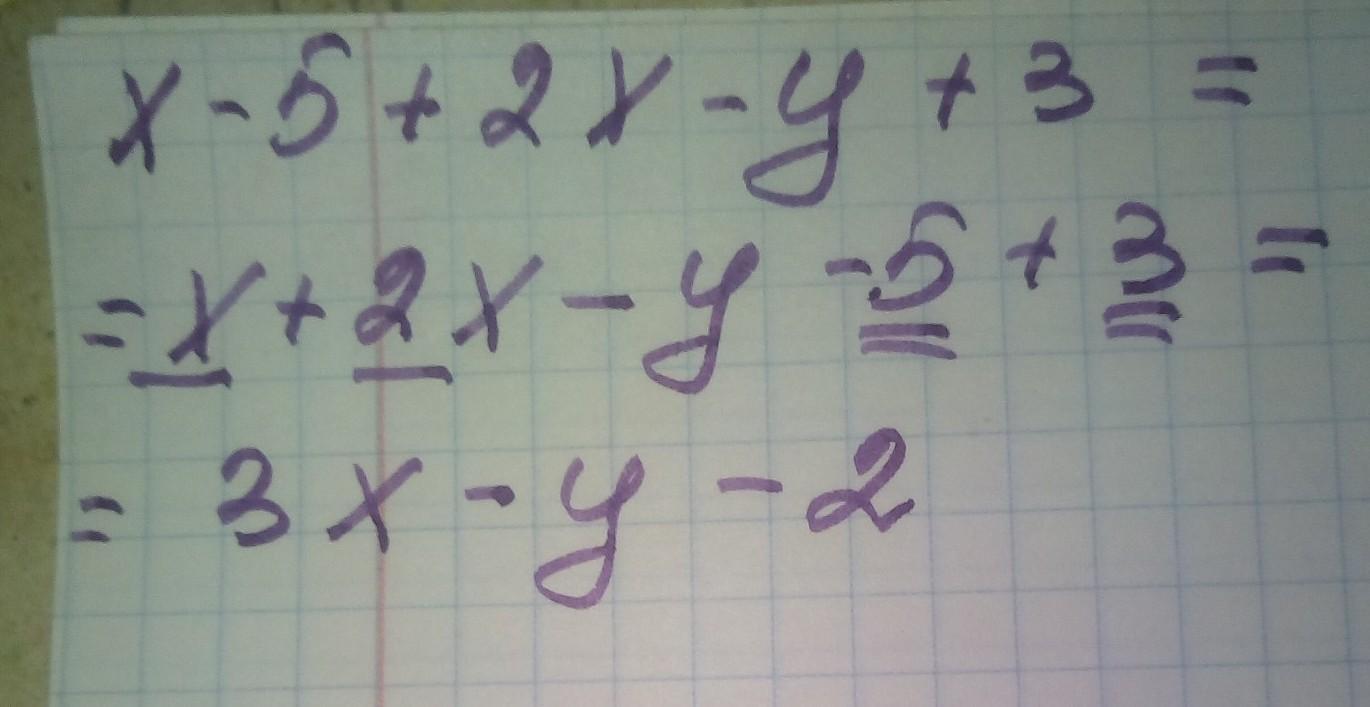 x - 5 + 2x - y + 3 =
= x + 2x - y - 5 + 3 =
= 3x - y - 2